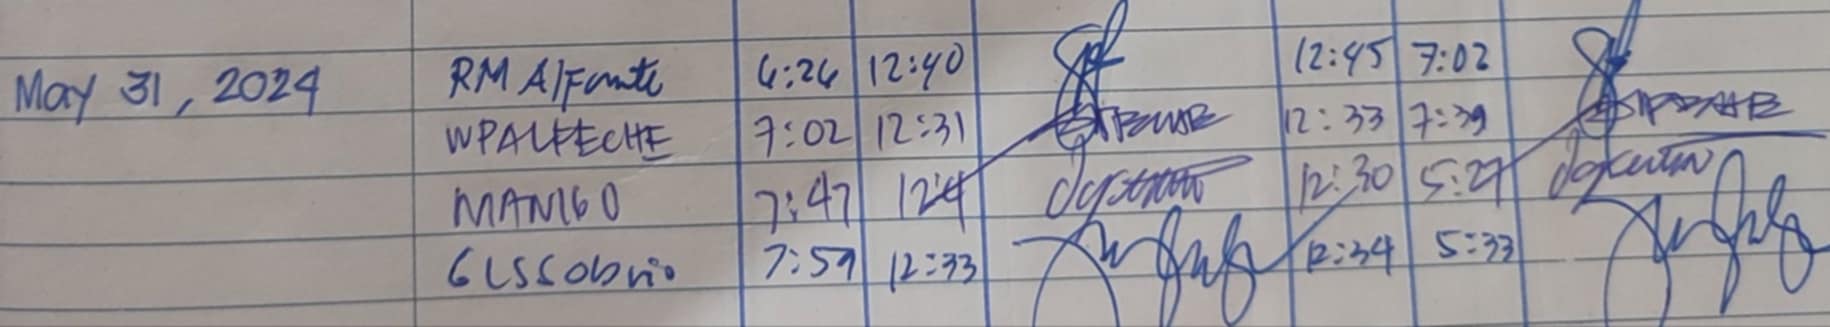 May 31, 2024 RM Alfante 6:26 12:40 12:45 7:02
WPALFECHE 7:02 12:31 12:33 7:39
MANIGO 7:47 12:30 5:27
GLSSobrio 7:59 12:33 12:34 5:33